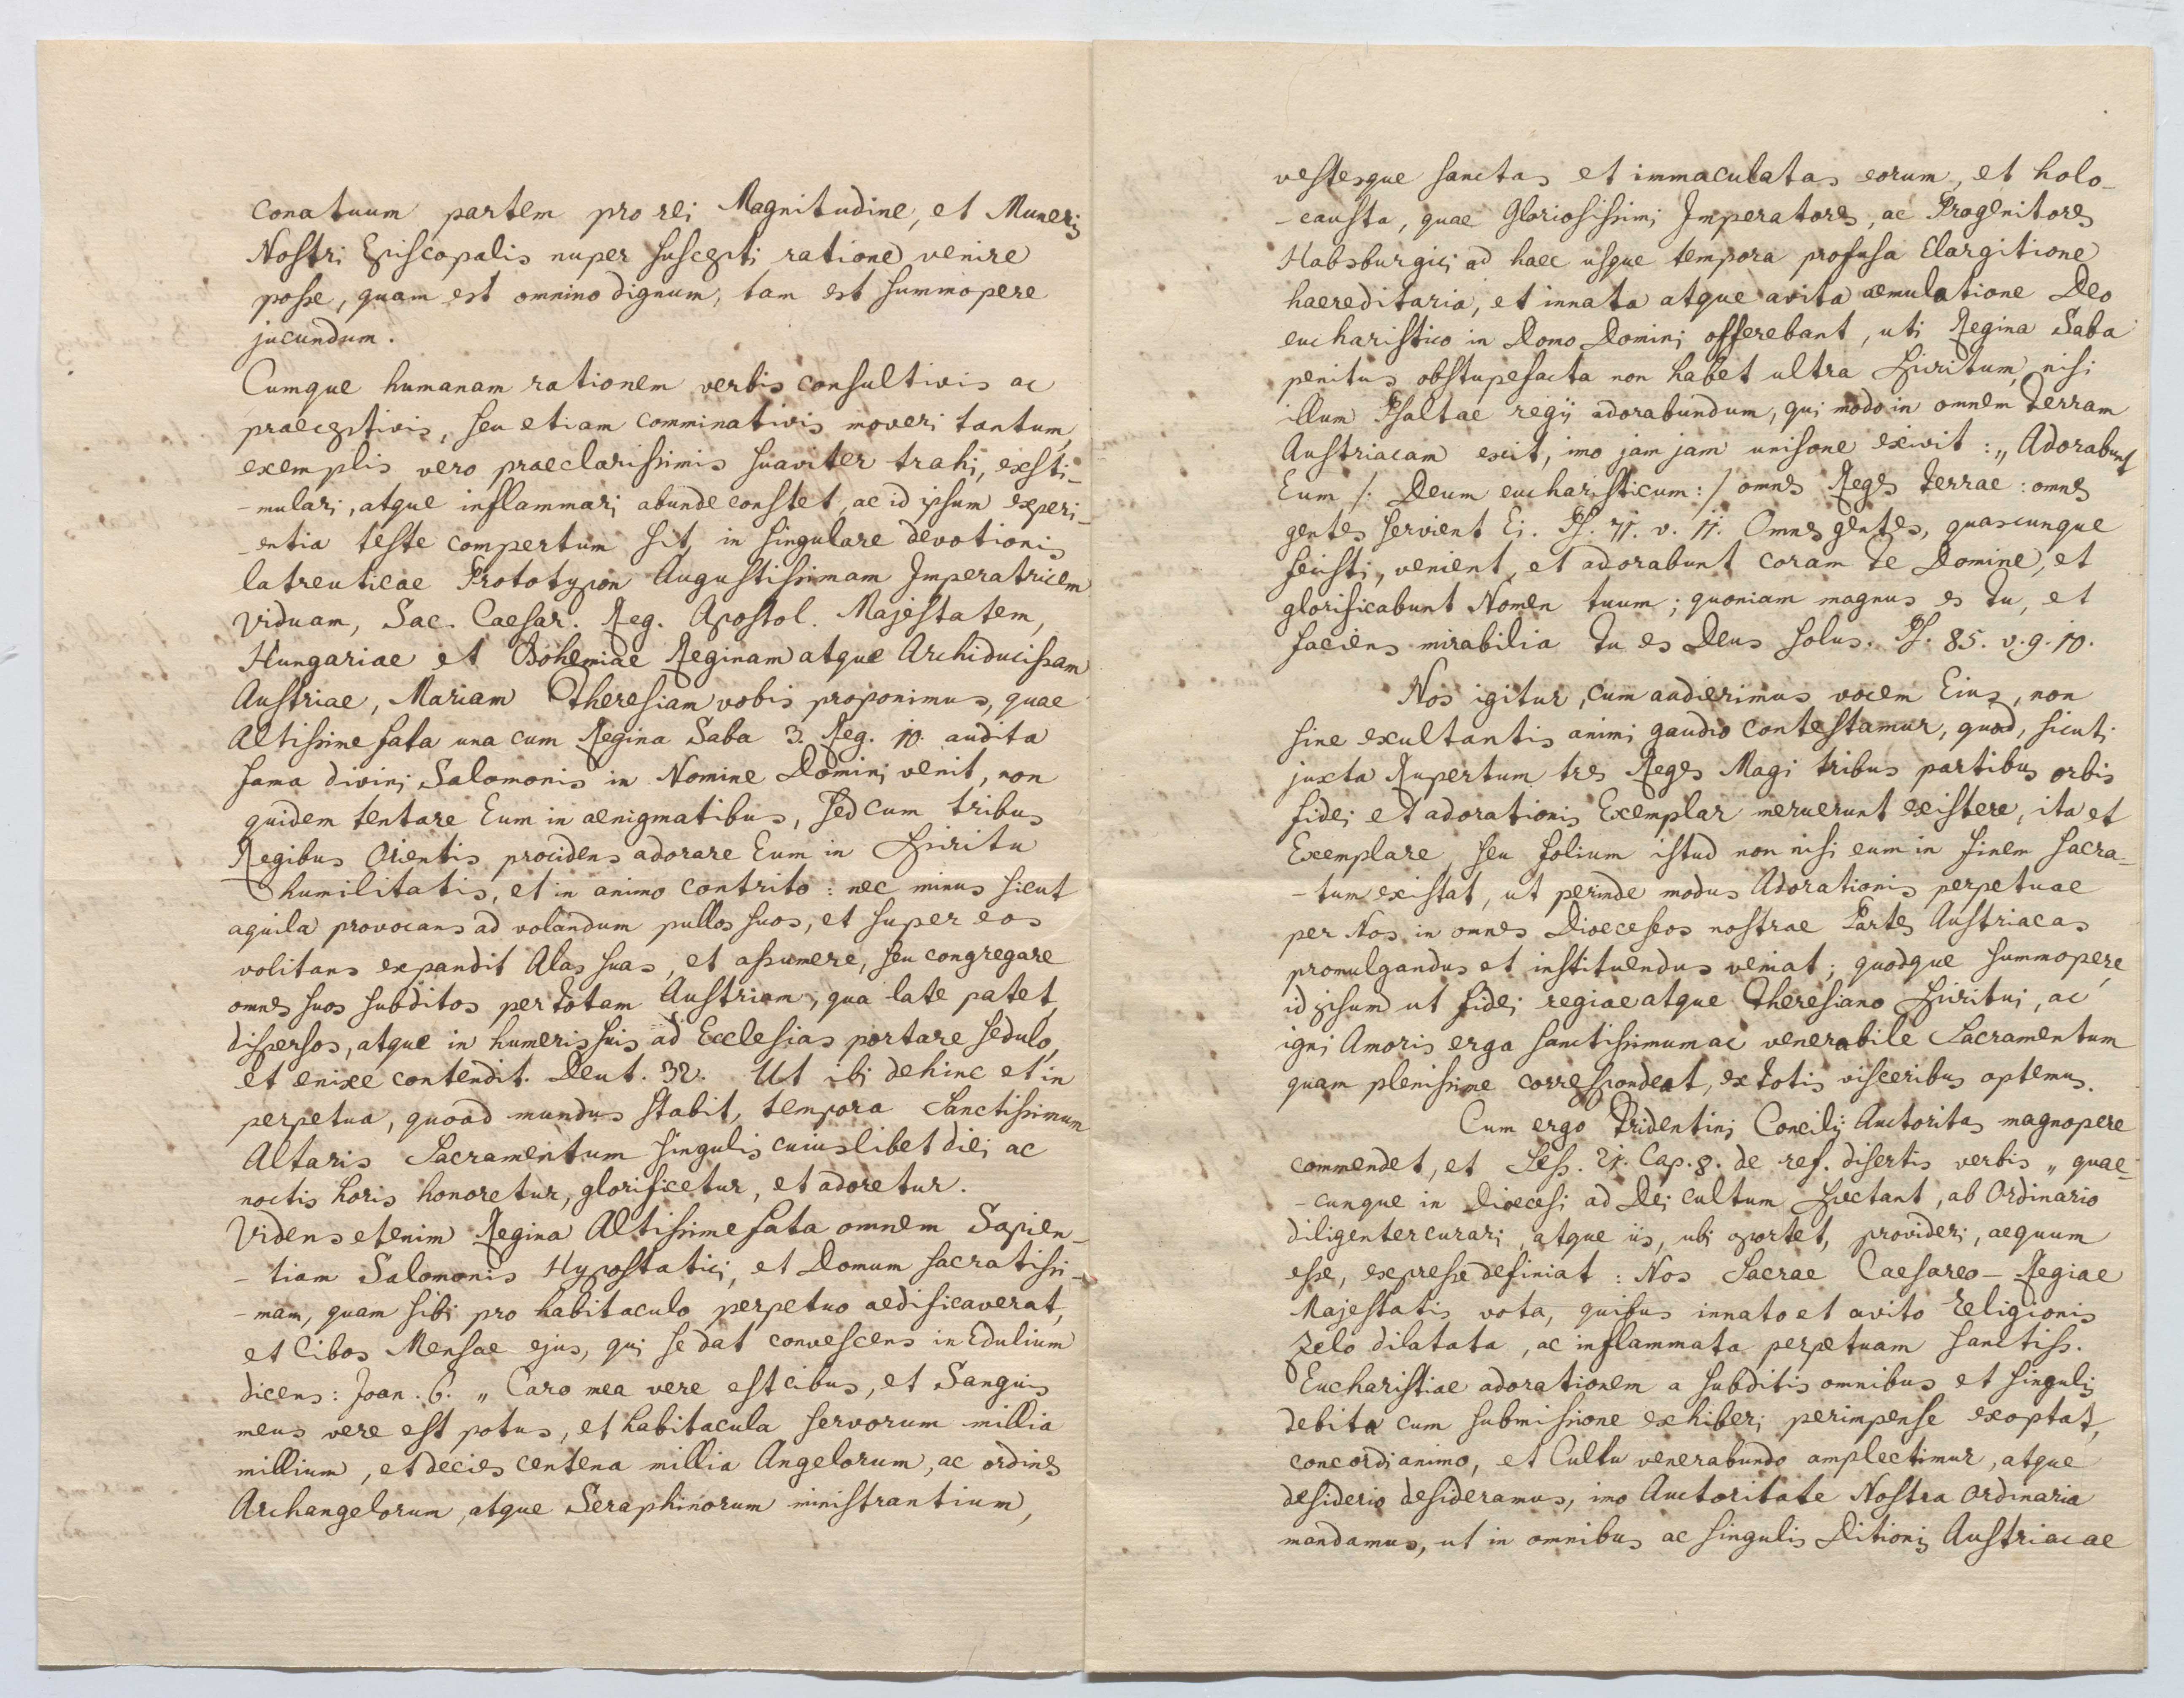 conatuum partem pro rei Magnitudine, et Muneris
Nostri Episcopalis nuper suscepti ratione venire
posse, quam est omnino dignum, tam est summopere
jucundum.
Cumque humanam rationem verbis consultivis ac
praeceptivis, seu etiam comminativis moveri tantum,
exemplis vero praeclarissimis suaviter trahi, exsti-
-mulari, atque inflammari abunde constet, ac id ipsum experi-
-entia teste compertum sit, in singulare devotionis
latreuticae Prototypon Augustissimam Imperatricem
Viduam, Sac. Caesar. Reg. Apostol. Majestatem,
Hungariae et Bohemiae Reginam atque Archiducissam
Austriae, Mariam Theresiam vobis proponimus, quae
Altissime fata una cum Regina Saba 3. Reg. 10. audita
fama divini Salomonis in Nomine Domini venit, non
quidem tentare Eum in aenigmatibus, sed cum tribus
Regibus Orientis procidens adorare Eum in Spiritu
humilitatis, et in animo contrito: nec minus sicut
aquila provocans ad volandum pullos suos, et super eos
volitans expandit Alas suas, et assumere, seu congregare
omnes suos subditos per totam Austriam, qua late patet,
dispersos, atque in humeris suis ad Ecclesias portare sedulo,
et enixe contendit. Deut. 32. Ut ibi dehinc et in
perpetua, quoad mundus stabit, tempora Sanctissimum
Altaris Sacramentum singulis cuiuslibet diei ac
noctis horis honoretur, glorificetur, et adoretur.
Videns etenim Regina Altissime fata omnem Sapien-
-tiam Salomonis Hypostatici, et Domum sacratissi-
-mam, quam sibi pro habitaculo perpetuo aedificaverat,
et Cibos Mensae ejus, qui se dat convescens in Edulium
dicens: Joan. 6. „ Caro mea vere est cibus, et Sanguis
meus vere est potus, et habitacula servorum millia
millium, et decies centena millia Angelorum, ac ordines
Archangelorum, atque Seraphinorum ministrantium,
vestesque sanctas et immaculatas eorum, et holo-
-causta, quae Gloriosissimi Imperatores, ac Progenitores
Habsburgici ad haec usque tempora profusa Elargitione
haereditaria, et innata atque avita aemulatione Deo
eucharistico in Domo Domini offerebant, uti Regina Saba
penitus obstupefacta non habet ultra Spiritum, nisi
illum Psaltae regij adorabundum, qui modo in omnem terram
Austriacam exit, imo jam jam unisone exivit: „ Adorabunt
Eum /: Deum eucharisticum: / omnes Reges terrae: omnes
gentes servient Ei. Ps. 71. v. 11. Omnes gentes, quascunque
fecisti, venient, et adorabunt coram Te Domine, et
glorificabunt Nomen tuum; quoniam magnus es Tu, et
faciens mirabilia Tu es Deus solus. Ps. 85. v. 9. 10.
Nos igitur, cum audierimus vocem Eius, non
sine exultantis animi gaudio contestamur, quod, sicuti
juxta Rupertum tres Reges Magi tribus partibus orbis
fidei et adorationis Exemplar meruerunt existere, ita et
Exemplare, seu folium istud non nisi eum in finem sacra-
-tum existat, ut perinde modus Adorationis perpetuae
per Nos in omnes Dioeceseos nostrae Partes Austriacas
promulgandus et instituendus veniat; quodque summopere,
id ipsum ut fidei regiae atque Theresiano Spiritui, ac
igni Amoris erga sanctissimum ac venerabile Sacramentum
quam plenissime correspondeat, ex totis visceribus optemus.
Cum ergo Tridentini Concilij Auctoritas magnopere
commendet, et Sess. 21. Cap. 8. de ref. disertis verbis „ quae-
-cunque in Dioecesi ad Dei cultum spectant, ab Ordinario
diligenter curari, atque iis, ubi oportet, provideri, aequum
esse, expresse definiat: Nos Sacrae Caesareo-Regiae
Majestatis vota, quibus innato et avito religionis
zelo dilatata, ac inflammata perpetuam sanctiss.
Eucharistiae adorationem a subditis omnibus et singulis
debita cum submissione exhiberi perimpense exoptat,
concordi animo, et Cultu venerabundo amplectimur, atque
desiderio desideramus, imo Auctoritate Nostra Ordinaria
mandamus, ut in omnibus ac singulis Ditionis Austriacae